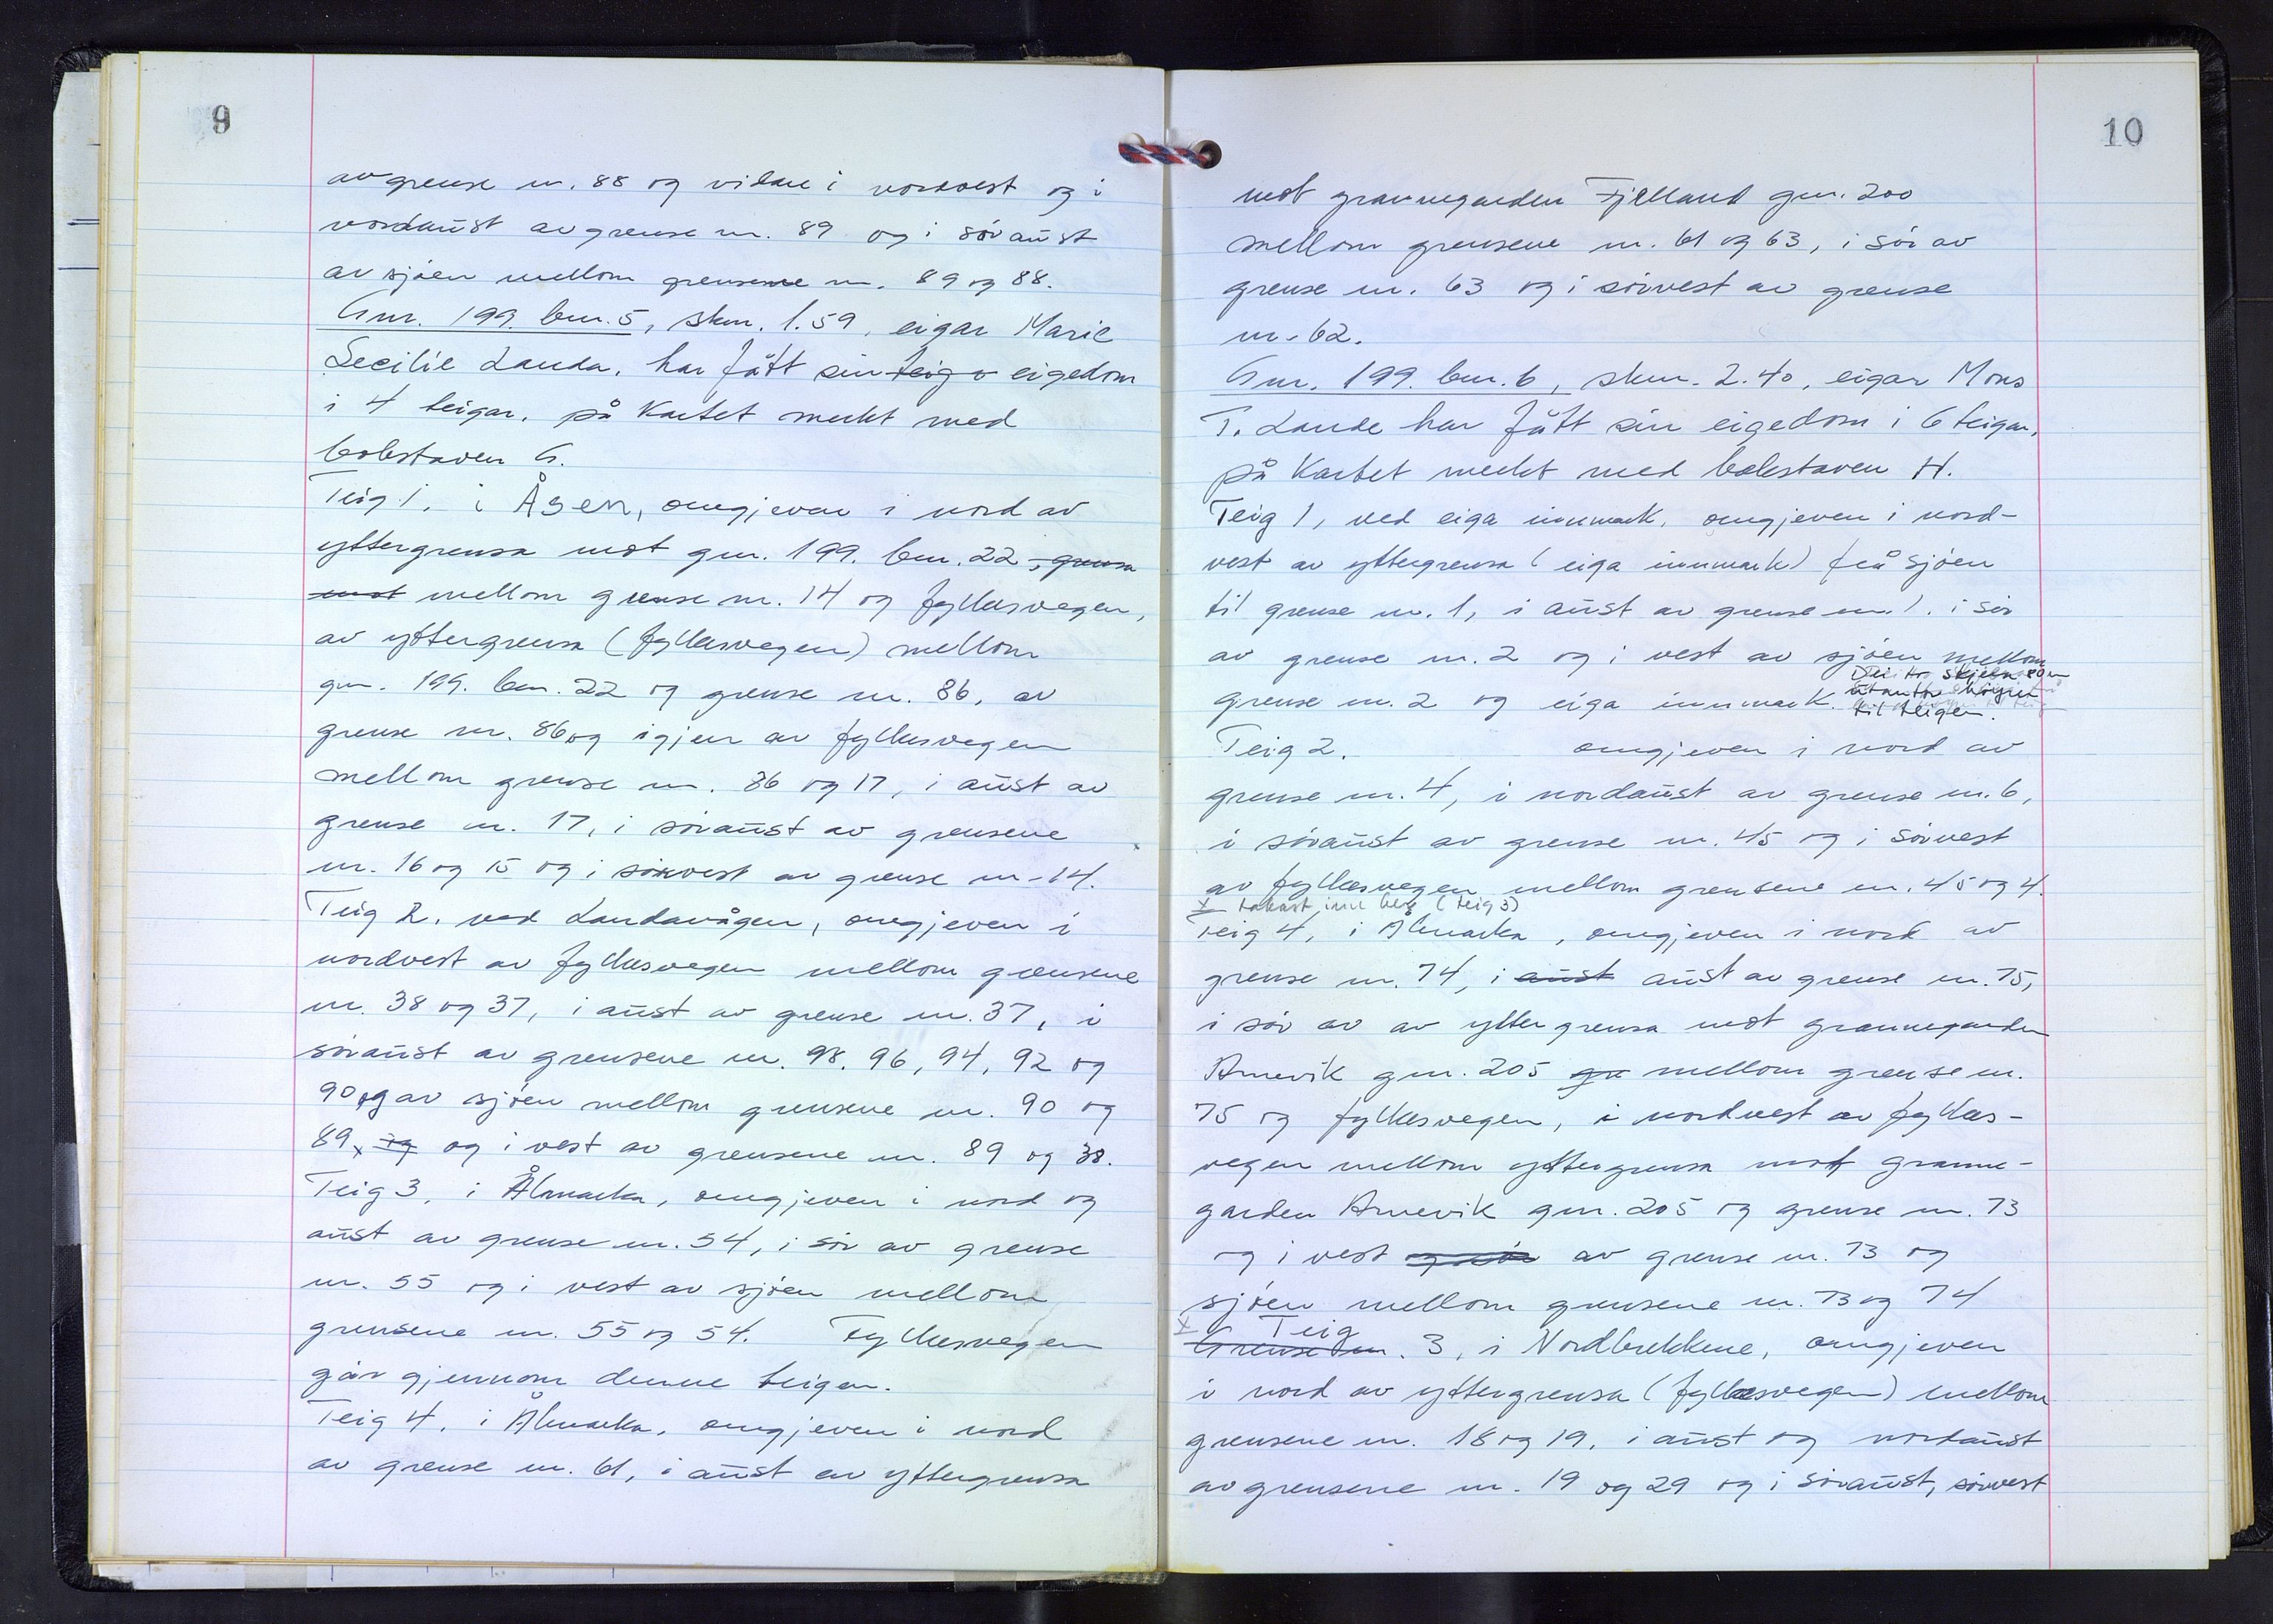 9
av grense nr. 88 og vidare i nordvest og i
nordaust av grense nr. 89 og i søraust
av sjøen mellom grensene nr. 89 og 88.
Gnr. 199. bnr. 5, skm. 1.59, eigar Marie
Secilie Landa, har fått sin teig o eigedom
i 4 teigar, på kartet merkt med
bokstaven G.
Teig 1, i Åsen, omgjeven i nord av
yttergrensa mot gnr. 199. bnr. 22, grensa
mot mellom grense nr. 14 og fylkesvegen,
av yttergrensa (fylkesvegen) mellom
gnr. 199. bnr. 22 og grense nr. 86, av
grense nr. 86 og igjen av fylkesvegen
mellom grense nr. 86 og 17, i aust av
grense nr. 17, i søraust av grensene
nr. 16 og 15 og i sørvest av grense nr. 14.
Teig 2. ved Landavågen, omgjeven i
nordvest av fylkesvegen mellom grensene
nr. 38 og 37, i aust av grense nr. 37, i
søraust av grensene nr. 98, 96, 94, 92 og
90 og av sjøen mellom grensene nr. 90 og
89, og og i vest av grensene nr. 89 og 38.
Teig 3, i Ålmarka, omgjeven i nord og
aust av grense nr. 54, i sør av grense
nr. 55 og i vest av sjøen mellom
grensene nr. 55 og 54. Fylkesvegen
går gjennom denne teigen.
Teig 4, i Ålmarka, omgjeven i nord
av grense nr. 61, i aust av yttergrensa
10
mot grannegarden Fjelland gnr. 200
mellom grensene nr. 61 og 63, i sør av
grense nr. 63 og i sørvest av grense
nr. 62.
Gnr. 199. bnr. 6, skm. 2.40, eigar Mons
T. Lande har fått sin eigedom i 6 teigar,
på kartet merkt med bokstaven H.
Teig 1, ved eiga innmark, omgjeven i nord-
vest av yttergrensa (eiga innmark) frå sjøen
til grense nr. 1, i aust av grense nr. 1. i sør
av grense nr. 2 og i vest av sjøen mellom
grense nr. 2 og eiga innmark. Dei to skjera som
utanfor høyrer
til teigen.
Teig 2. omgjeven i nord av
grense nr. 4, i nordaust av grense nr. 6,
i søraust av grense nr. 45 og i sørvest
av fylkesvegen mellom grensene nr. 45 og 4.
x takast inn her (teig 3)
Teig 4, i Ålmarka, omgjeven i nord av
grense nr. 74, i aust aust av grense nr. 75,
i sør av av yttergrensa mot grannegarden
Arnevik gnr. 205 gre mellom grense nr.
75 og fylkesvegen, i nordvest av fylkes-
vegen mellom yttergrensa mot granne-
garden Arnevik gnr. 205 og grense nr. 73
og i vest og sør av grense nr. 73 og
sjøen mellom grensene nr. 73 og 74
x Teig
Grense nr. 3, i Nordbrekkene, omgjeven
i nord av yttergrensa (fylkesvegen) mellom
grensene nr. 18 og 19, i aust og nordaust
av grensene nr. 19 og 29 og i søraust, sørvest